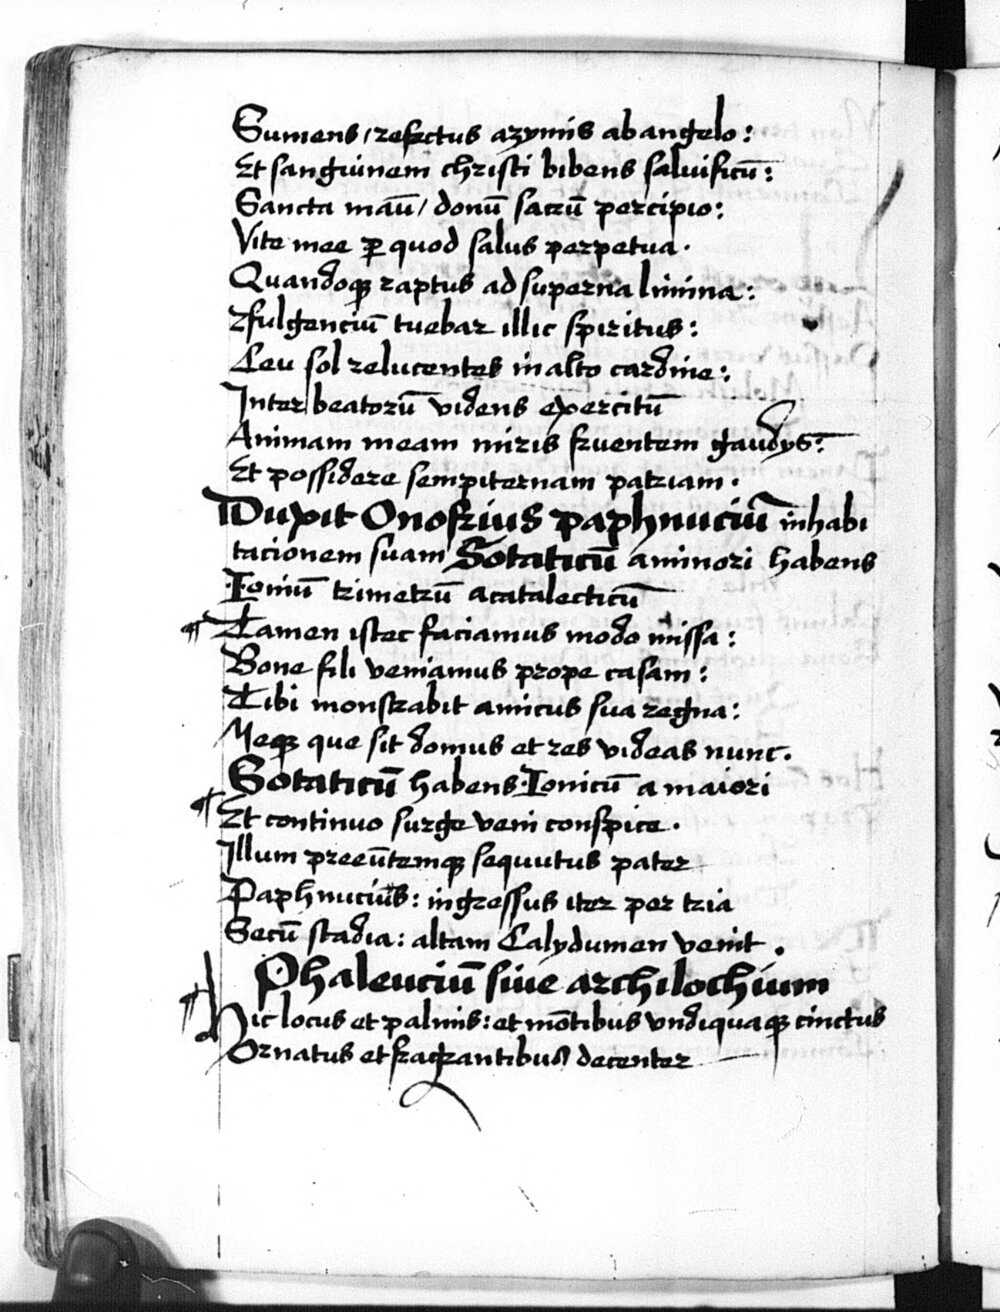 Sumens / refectus azymis ab angelo:
Et sanguinem christi bibens saluificū:
Sancta manū / donū sacrū percipio:
Vite mee ꝑ quod salus perpetua.
Quandoqꝫ raptus ad superna limina:
Efulgenciū tuebar illic spiritus:
Ceu sol relucentes in alto cardine:
Inter beatorū videns exercitū
Animam meam miris fruentem gaudys:
Et possidere sempiternam patriam.
Duxit Onofrius paphnuciū in habi
tacionem suam Sotaticū a minori habens
Ionicū trimetrū acatalecticū
¶ Tamen istec faciamus modo missa:
Bone fili veniamus prope casam:
Tibi monstrabit amicus sua regna:
Meqꝫ que sit domus et res videas nunc.
Sotaticū habens Ionicū a maiori
¶ Et continuo surge veni conspice.
Illum preeūtemqꝫ sequutus pater
Paphnucius: ingressus iter per tria
Secū stadia: altam Calydumen venit.
Phaleuciū siue archilochium
¶ Hic locus et palmis: et mōtibus vndiquaqꝫ cinctus
Ornatus et fragrantibus decenter